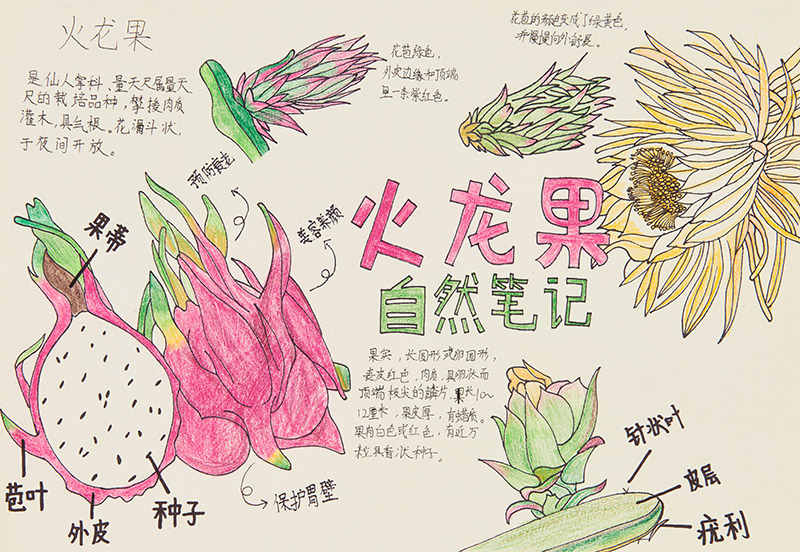 火龙果
是仙人掌科、量天尺属量天
尺的栽培品种，攀援肉质
灌木，具气根。花漏斗状，
于夜间开放。
花苞绿色，
外皮边缘和顶端
呈一条紫红色。
花苞的颜色变成了绿黄色，
并慢慢向外舒展。
预防贫血
美容养颜
火龙果
自然笔记
果蒂
果实，长圆形或卵圆形，
表皮红色，肉质，具卵状而
顶端极尖的鳞片，果长10~
12厘米，果皮厚，有蜡质。
果肉白色或红色，有近万
粒具香状种子。
针状叶
皮层
疣利
苞叶
外皮
种子
保护胃壁